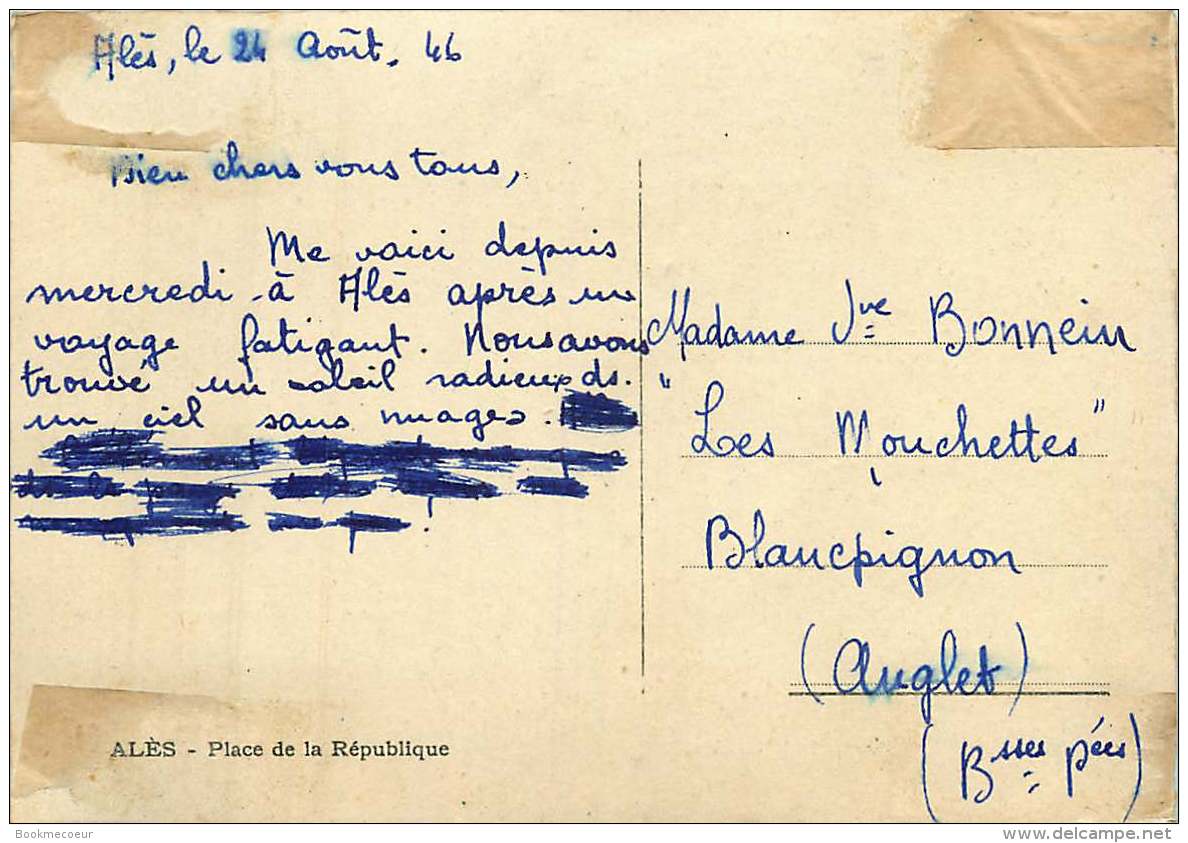 Alès, le 24 Août. 46
Bien chers vous tous,
Me voici depuis
mercredi à Alès après un
voyage fatigant. Nous avons
trouvé un soleil radieux ds.
un ciel sans nuages.
Madame Jve Bonnein
"Les Mouchettes"
Blancpignon
(Anglet)
(Bsses Pées)
ALÈS - Place de la République
Bookmecoeur
www.delcampe.net